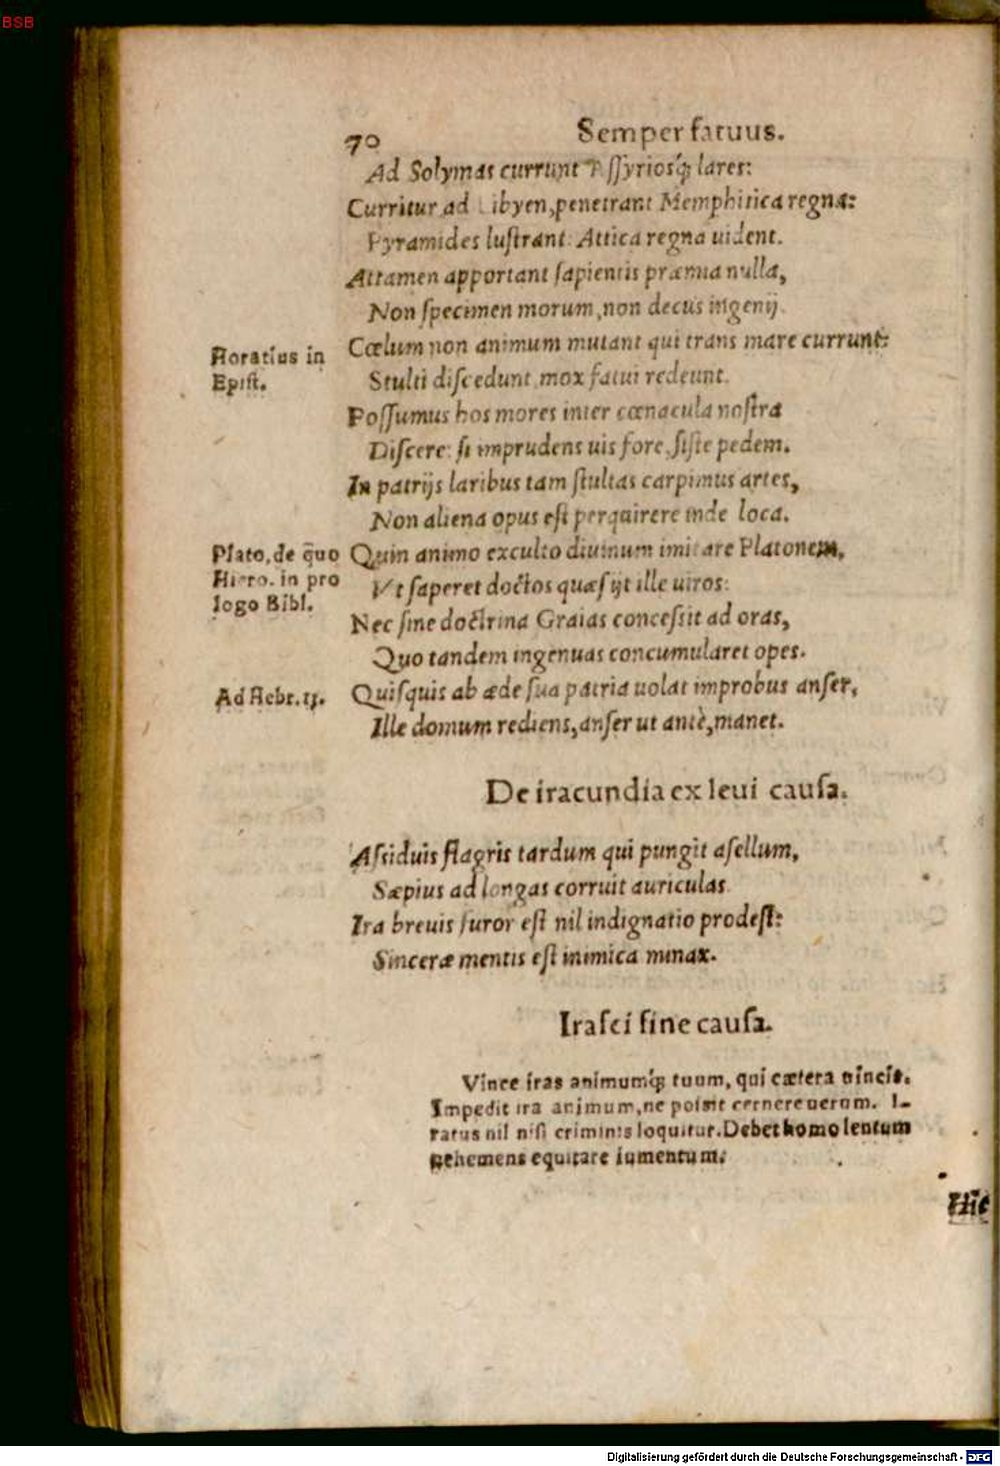 BSB
70 Semper fatuus.
Ad Solymas currunt Aſſyriosq́; lares:
Curritur ad Libyen, penetrant Memphitica regna:
Pyramides luſtrant: Attica regna uident.
Attamen apportant ſapientis præmia nulla,
Non ſpecimen morum, non decus ingenij.
Horatius in
Epiſt.
Cœlum non animum mutant qui trans mare currunt:
Stulti diſcedunt, mox fatui redeunt.
Poſſumus hos mores inter cœnacula noſtra
Diſcere: ſi imprudens uis fore, ſiſte pedem.
In patrijs laribus tam ſtultas carpimus artes,
Non aliena opus eſt perquirere inde loca.
Plato, de quo
Hiero. in pro
logo Bibl.
Quin animo exculto diuinum imitare Platonem,
Vt ſaperet doctos quæſijt ille uiros:
Nec ſine doctrina Graias conceſſit ad oras,
Quo tandem ingenuas concumularet opes.
Ad Hebr. 13.
Quiſquis ab æde ſua patria uolat improbus anſer,
Ille domum rediens, anſer ut antè, manet.
De iracundia ex leui cauſa.
Aſsiduis flagris tardum qui pungit aſellum,
Sæpius ad longas corruit auriculas.
Ira breuis furor eſt nil indignatio prodeſt:
Sinceræ mentis eſt inimica minax.
Iraſci ſine cauſa.
Vince iras animumq́; tuum, qui cætera uincis.
Impedit ira animum, ne poſsit cernere uerum. I-
ratus nil niſi criminis loquitur. Debet homo lentum
uehemens equitare iumentum.
Hic
Digitalisierung gefördert durch die Deutsche Forschungsgemeinschaft - DFG